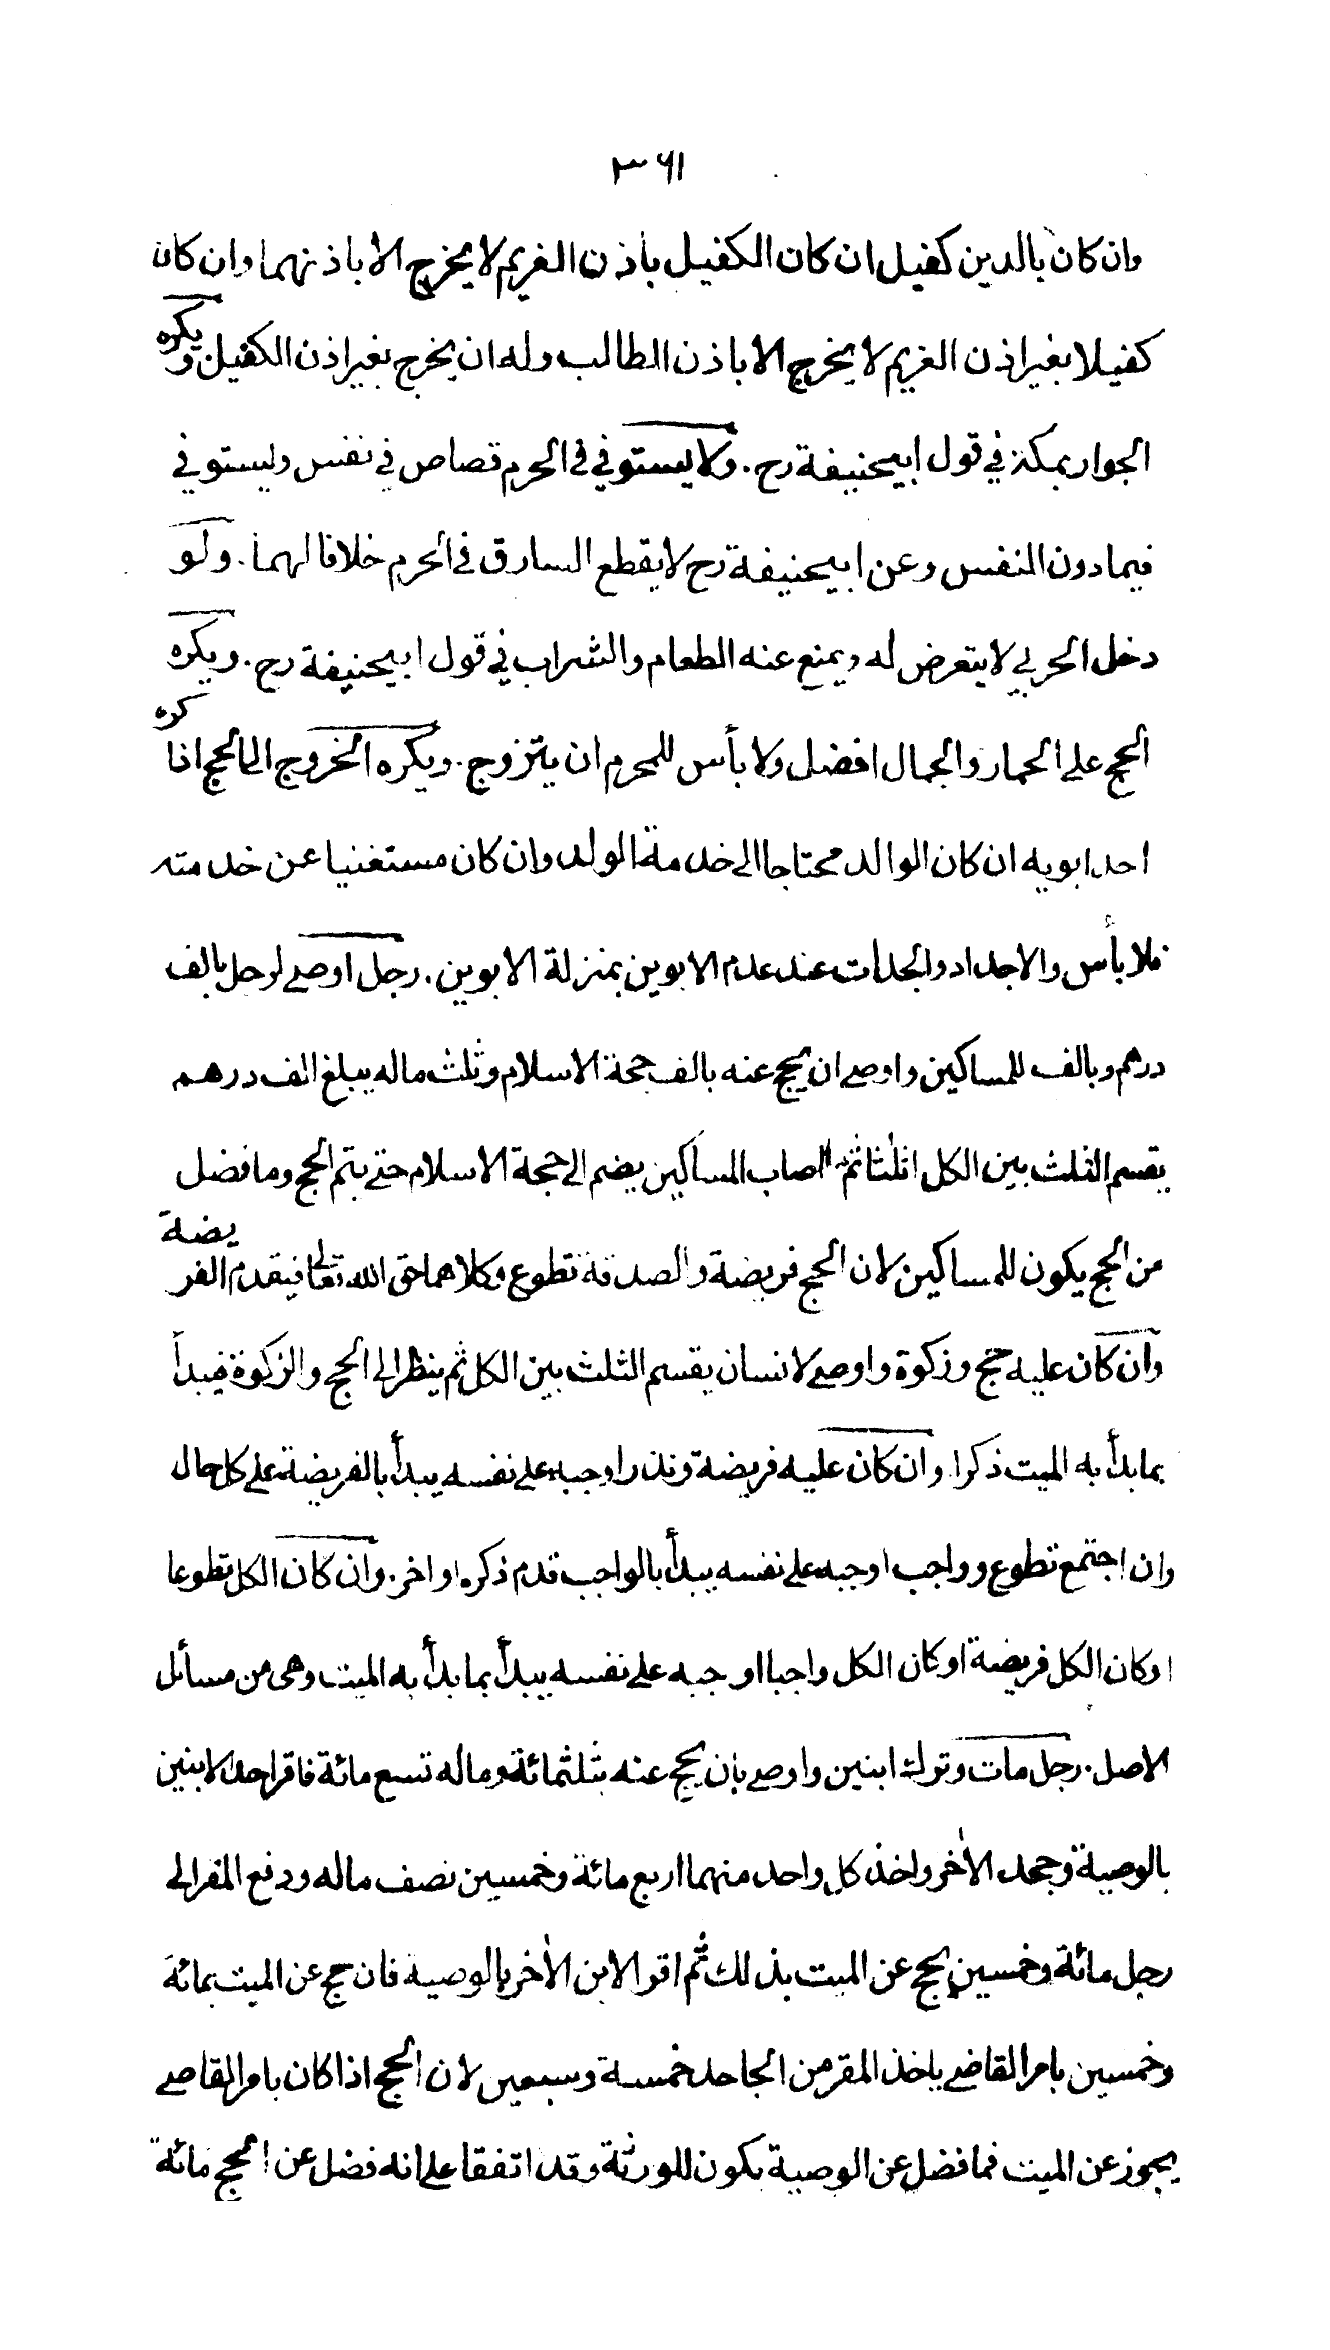 ٣٦١
وان كان بالدين كفيل ان كان الكفيل باذن الغريم لا يخرج الا باذنهما وان كان
كفيلا بغير اذن الغريم لا يخرج الا باذن الطالب وله ان يخرج بغير اذن الكفيل ويكره
الجوار بمكة في قول ابيحنيفة رح. ولا يستوفي في الحرم قصاص في نفس ويستوفي
فيما دون النفس وعن ابيحنيفة رح لا يقطع السارق في الحرم خلافا لهما. ولو
دخل الحربي لا يتعرض له ويمنع عنه الطعام والشراب في قول ابيحنيفة رح. ويكره
الحج على الحمار والجمال افضل ولا بأس للمحرم ان يتزوج. ويكره الخروج الى الحج اذا كره
احد ابويه ان كان الوالد محتاجا الى خدمة الولد وان كان مستغنيا عن خدمته
فلا بأس والاجداد والجدات عند عدم الابوين بمنزلة الابوين. رجل اوصى لرجل بالف
درهم وبالف للمساكين واوصى ان يحج عنه بالف حجة الاسلام وثلث ماله يبلغ الف درهم
يقسم الثلث بين الكل اثلثا ثم ما اصاب المساكين يضم الى حجة الاسلام حتى يتم الحج وما فضل
من الحج يكون للمساكين لان الحج فريضة والصدقة تطوع وكلاهما حق الله تعالى فيقدم الفريضة
وان كان عليه حج وزكوة واوصى لانسان يقسم الثلث بين الكل ثم ينظر الى الحج والزكوة فيبدأ
بما بدأ به الميت ذكرا. وان كان عليه فريضة ونذر اوجبه على نفسه يبدأ بالفريضة على كل حال
وان اجتمع تطوع وواجب اوجبه على نفسه يبدأ بالواجب قدم ذكره او اخر. وان كان الكل تطوعا
او كان الكل فريضة او كان الكل واجبا اوجبه على نفسه يبدأ بما بدأ به الميت وهى من مسائل
الاصل. رجل مات وترك ابنين واوصى بان يحج عنه بثلثمائة وماله تسع مائة فاقر احد الابنين
بالوصية وجحد الاخر واخذ كل واحد منهما اربع مائة وخمسين نصف ماله ودفع المقر الى
رجل مائة وخمسين يحج عن الميت بذلك ثم اقر الابن الاخر بالوصية فان حج عن الميت بمائة
وخمسين بامر القاضى ياخذ المقر من الجاحد خمسة وسبعين لان الحج اذا كان بامر القاضى
يجوز عن الميت فما فضل عن الوصية يكون للورثة وقد اتفقا على انه فضل عن الحج مائة